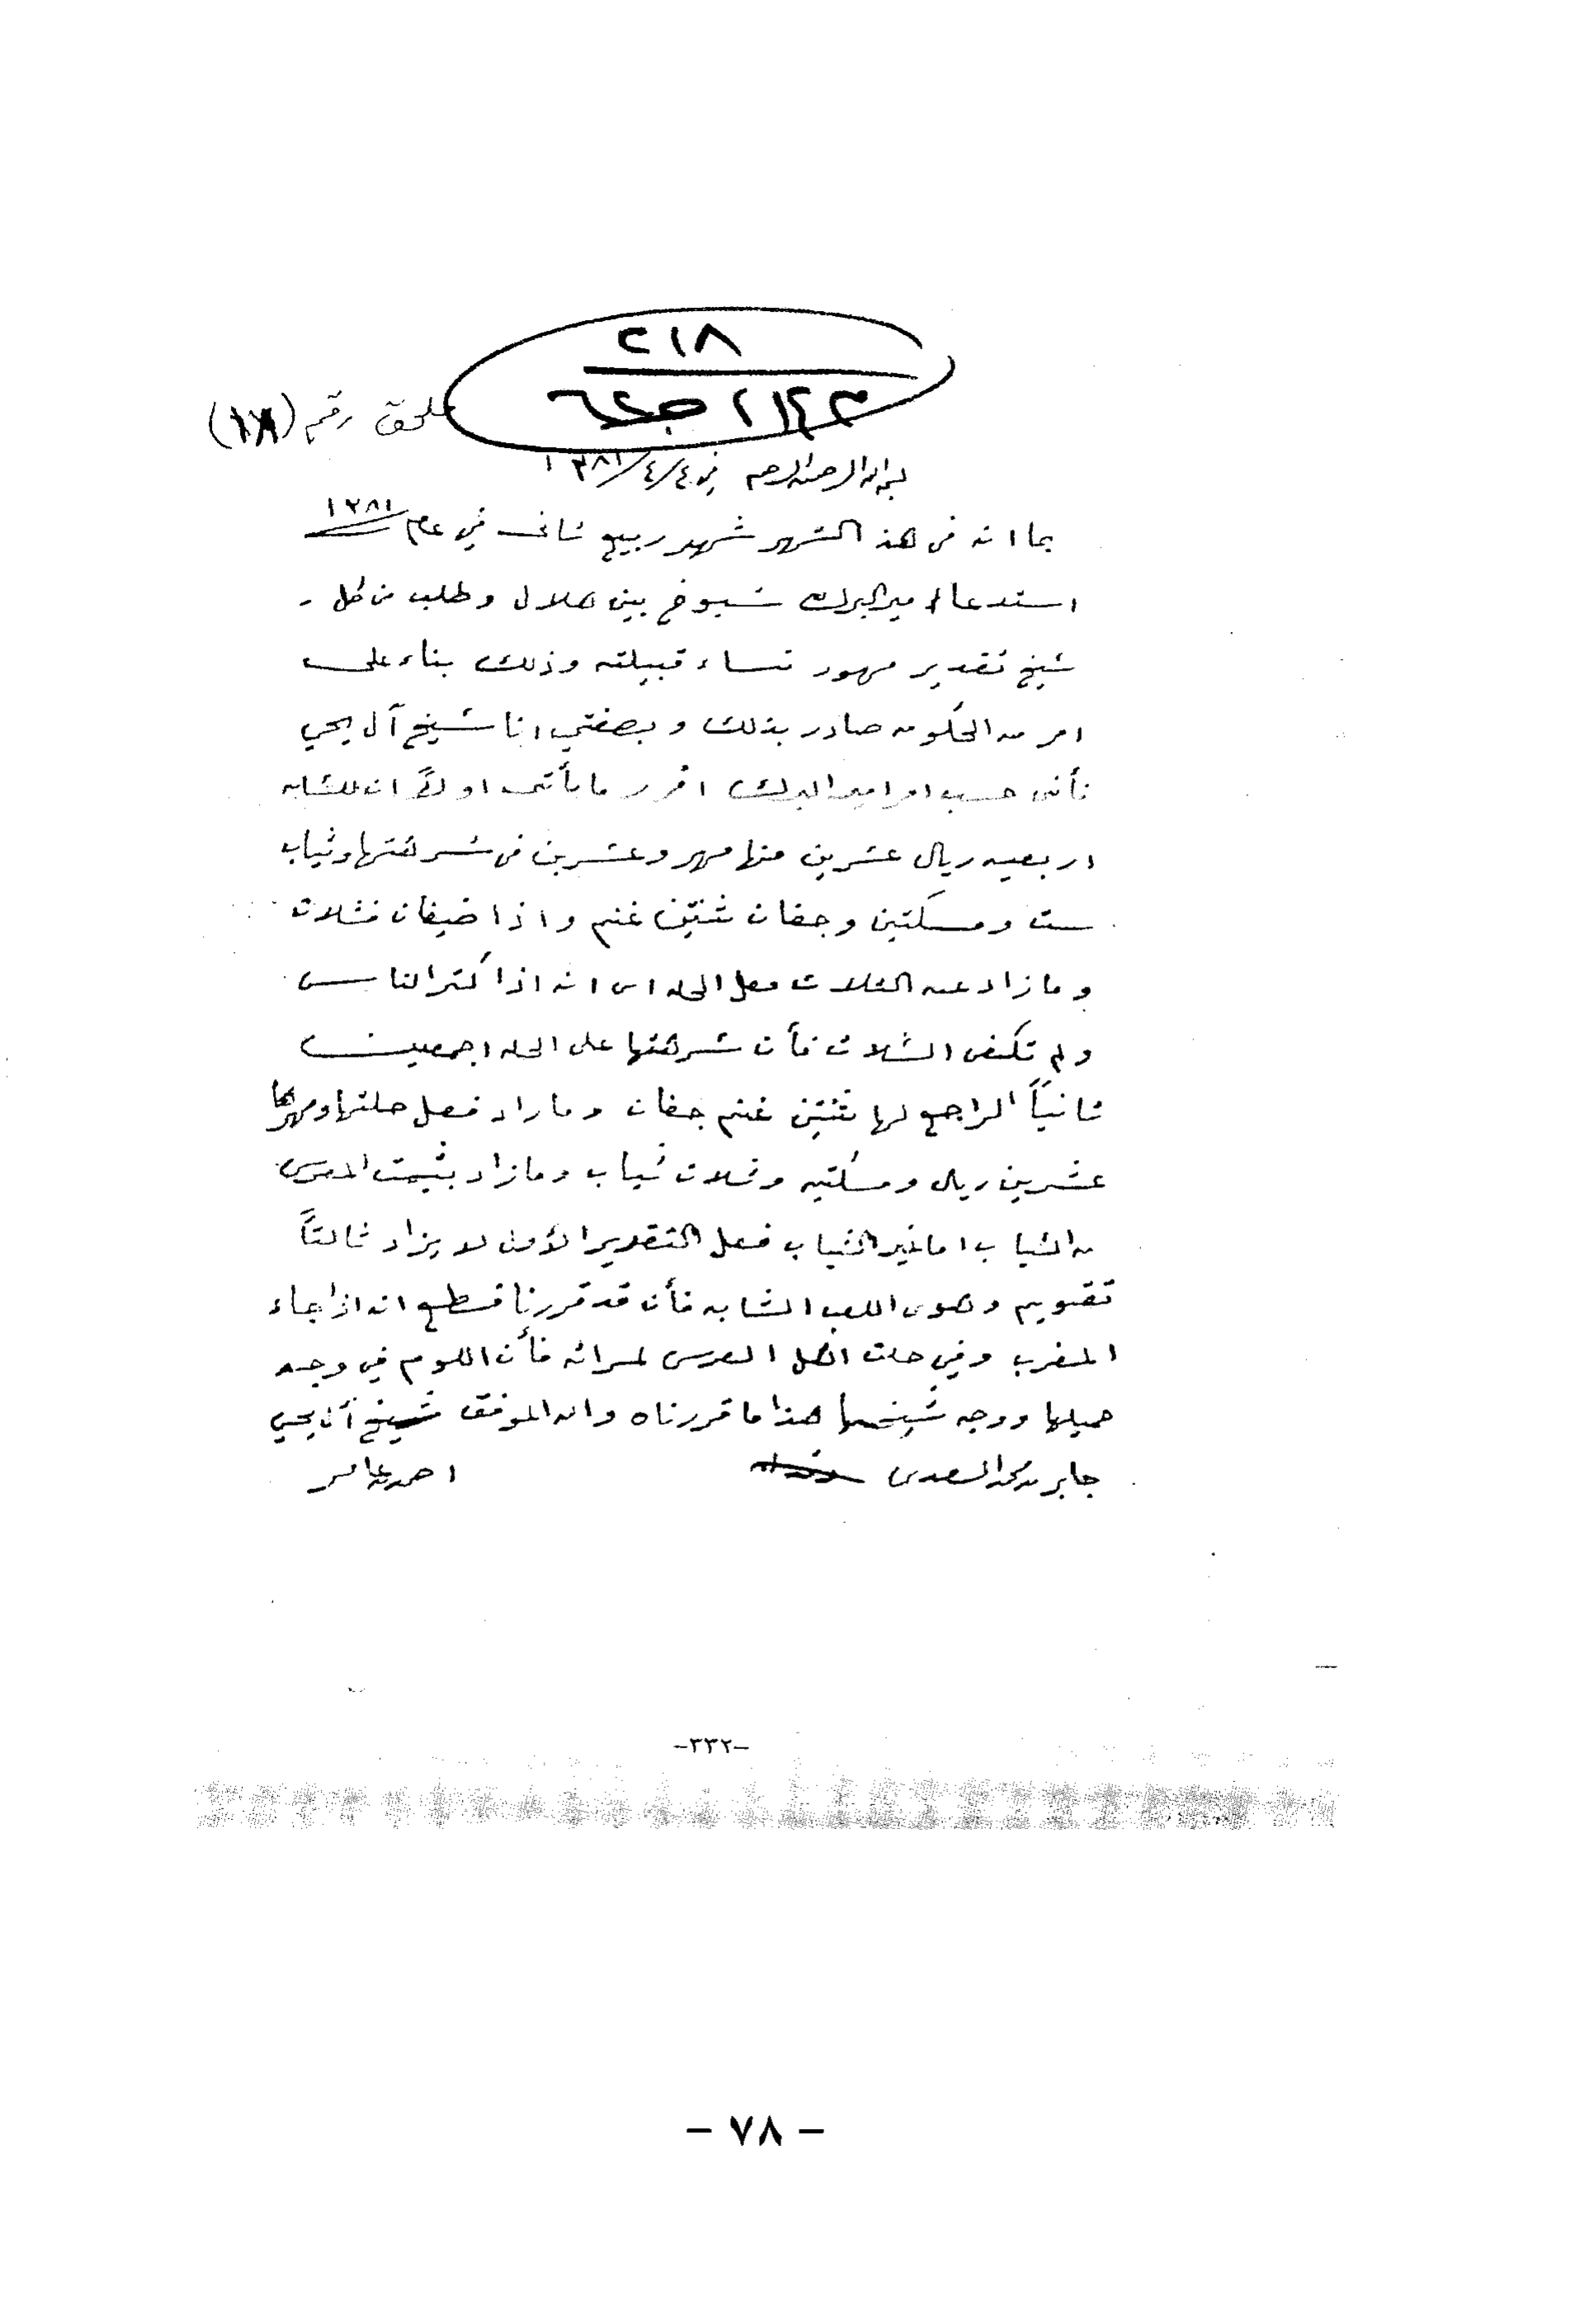 ٢١٨
ملحق رقم (١٨)
بسم الله الرحمن الرحيم في ٤/٤/١٣٨١
بما انه في هذ الشهر شهر ربيع ثاني في عام ١٣٨١
استدعا امير البرك شيوخ بني هلال وطلب من كل
شيخ تقدير مهور نساء قبيلته وذلك بناء على
امر من الحكومه صادر بذلك وبصفتي انا شيخ آل يحي
فأني حسب امر امير البرك اقرر ما يأتي اولاً ان للشابه
اربعين ريال عشرين منها مهر وعشرين في شرهتها وثياب
ست ومسكتين وجفان ثنتين غنم واذا ضيفان فثلاث
وما زاد عن الثلاث فعل الحله اي انه اذا كثر الناس
ولم تكفي الثلاث فأن شرهتها على الحله اجمعين
ثانياً الراجع لها ثنتين غنم جفان وما زاد فعل حلتها ومهرها
عشرين ريال ومسكتين وثلاث ثياب وما زاد بثيمت العرس
من الثياب اما غير الثياب فعل التقدير الأول لا يزاد ثالثاً
تقويم وهوى اللعب الشابه فأن قد قررنا قسطع انه اذا جاء
المغرب وفي حلت اهل العرس لمراته فأن اللوم في وجه
حميلها ووجه شيخها هذا ما قررناه والله الموفق شيخ آل يحي
جابر محمد السعدي احمد عامر
-٣٣٢-
- ٧٨ -